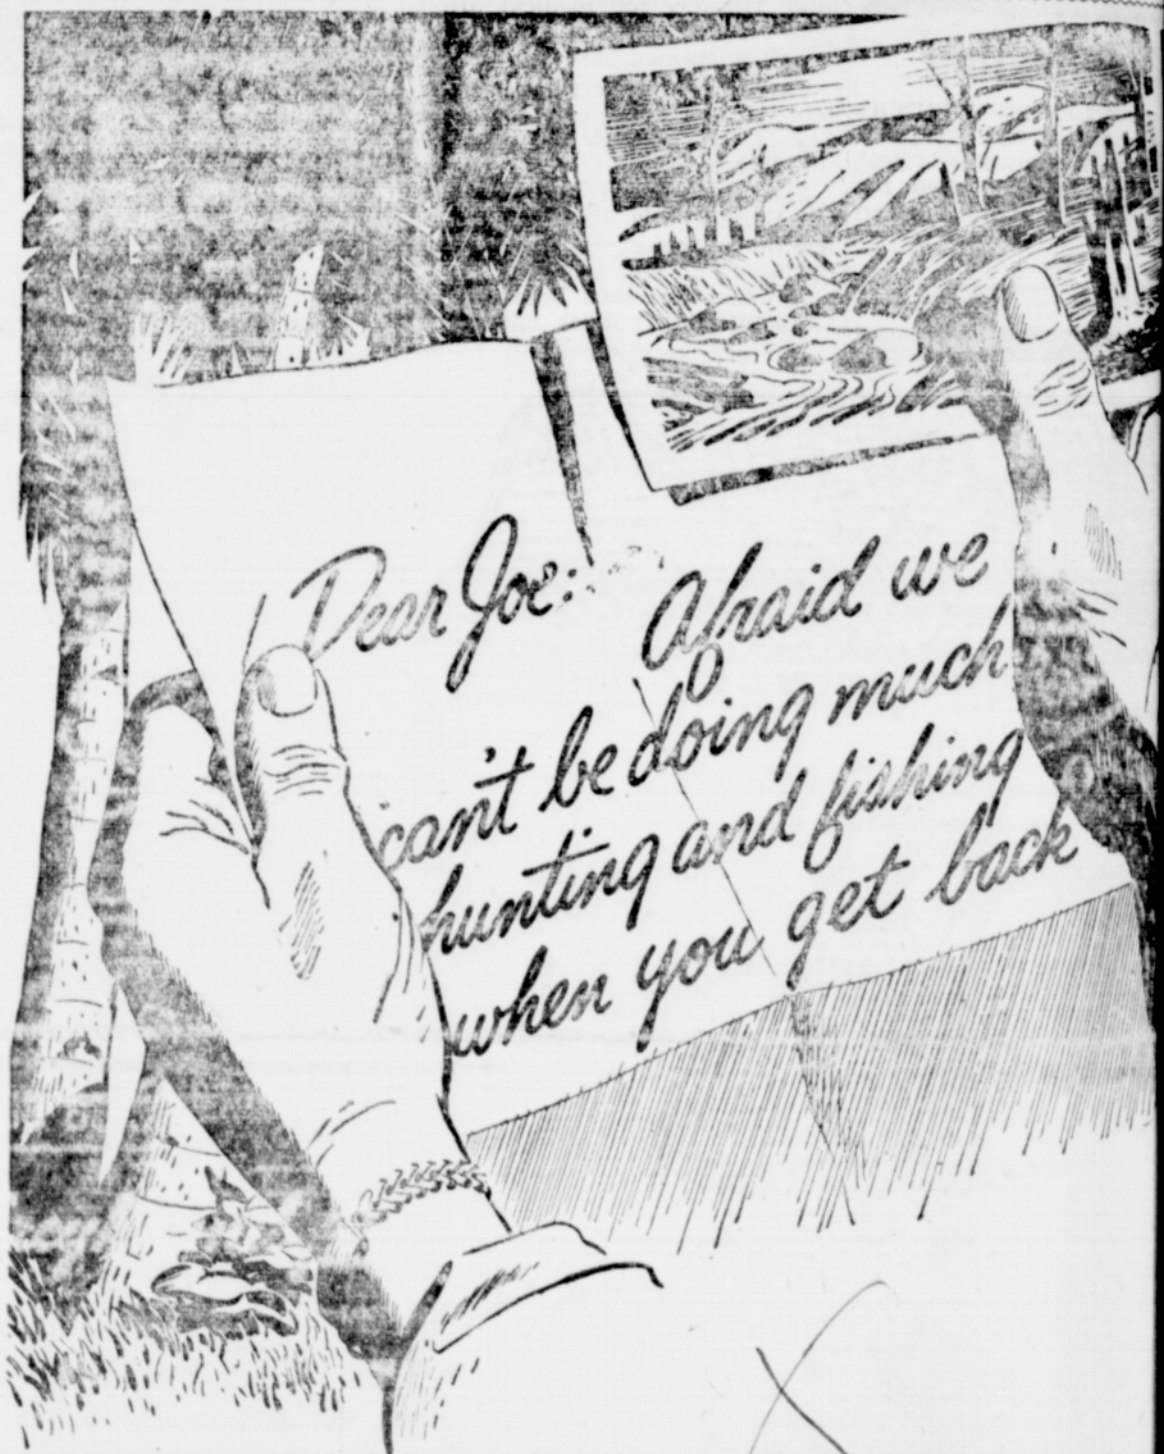 Dear Joe:
Afraid we
can't be doing much
hunting and fishing
when you get back